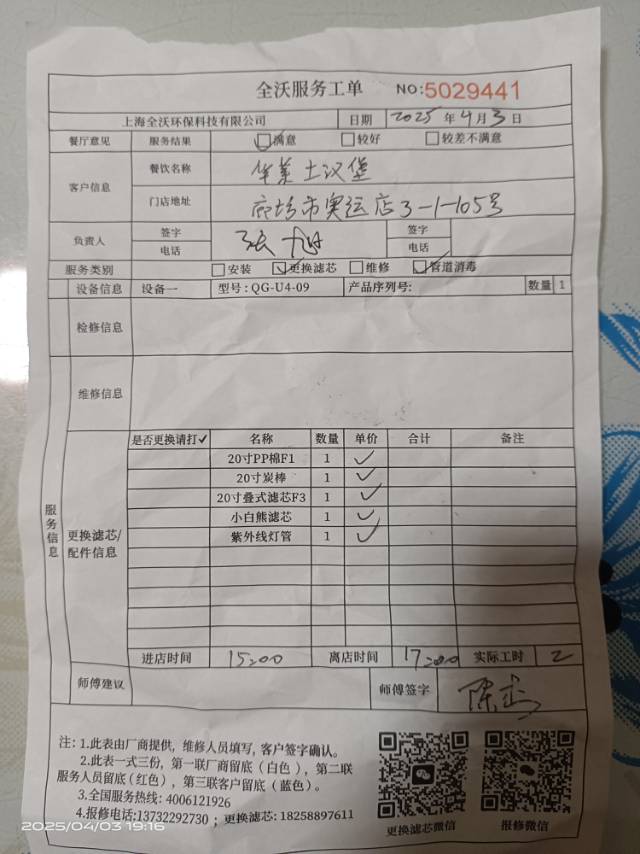 全沃服务工单 NO:5029441
上海全沃环保科技有限公司 日期 2025年4月3日
餐厅意见 服务结果 ☑满意 □较好 □较差不满意
客户信息 餐饮名称 华莱士汉堡
门店地址 廊坊市奥运店3-1-105号
负责人 签字 张旭 签字
电话 电话
服务类别 □安装 ☑更换滤芯 □维修 ☑管道消毒
设备信息 设备一 型号:QG-U4-09 产品序列号: 数量 1
检修信息
维修信息
服务信息
更换滤芯/配件信息
是否更换请打✓ 名称 数量 单价 合计 备注
20寸PP棉F1 1 ✓
20寸炭棒 1 ✓
20寸叠式滤芯F3 1 ✓
小白熊滤芯 1 ✓
紫外线灯管 1 ✓
进店时间 15:00 离店时间 17:00 实际工时 2
师傅建议 师傅签字 陈
注: 1.此表由厂商提供, 维修人员填写, 客户签字确认。
2.此表一式三份, 第一联厂商留底(白色), 第二联
服务人员留底(红色), 第三联客户留底(蓝色)。
3.全国服务热线: 4006121926
4.报修电话:13732292730 ; 更换滤芯: 18258897611
更换滤芯微信 报修微信
2025/04/03 19:16